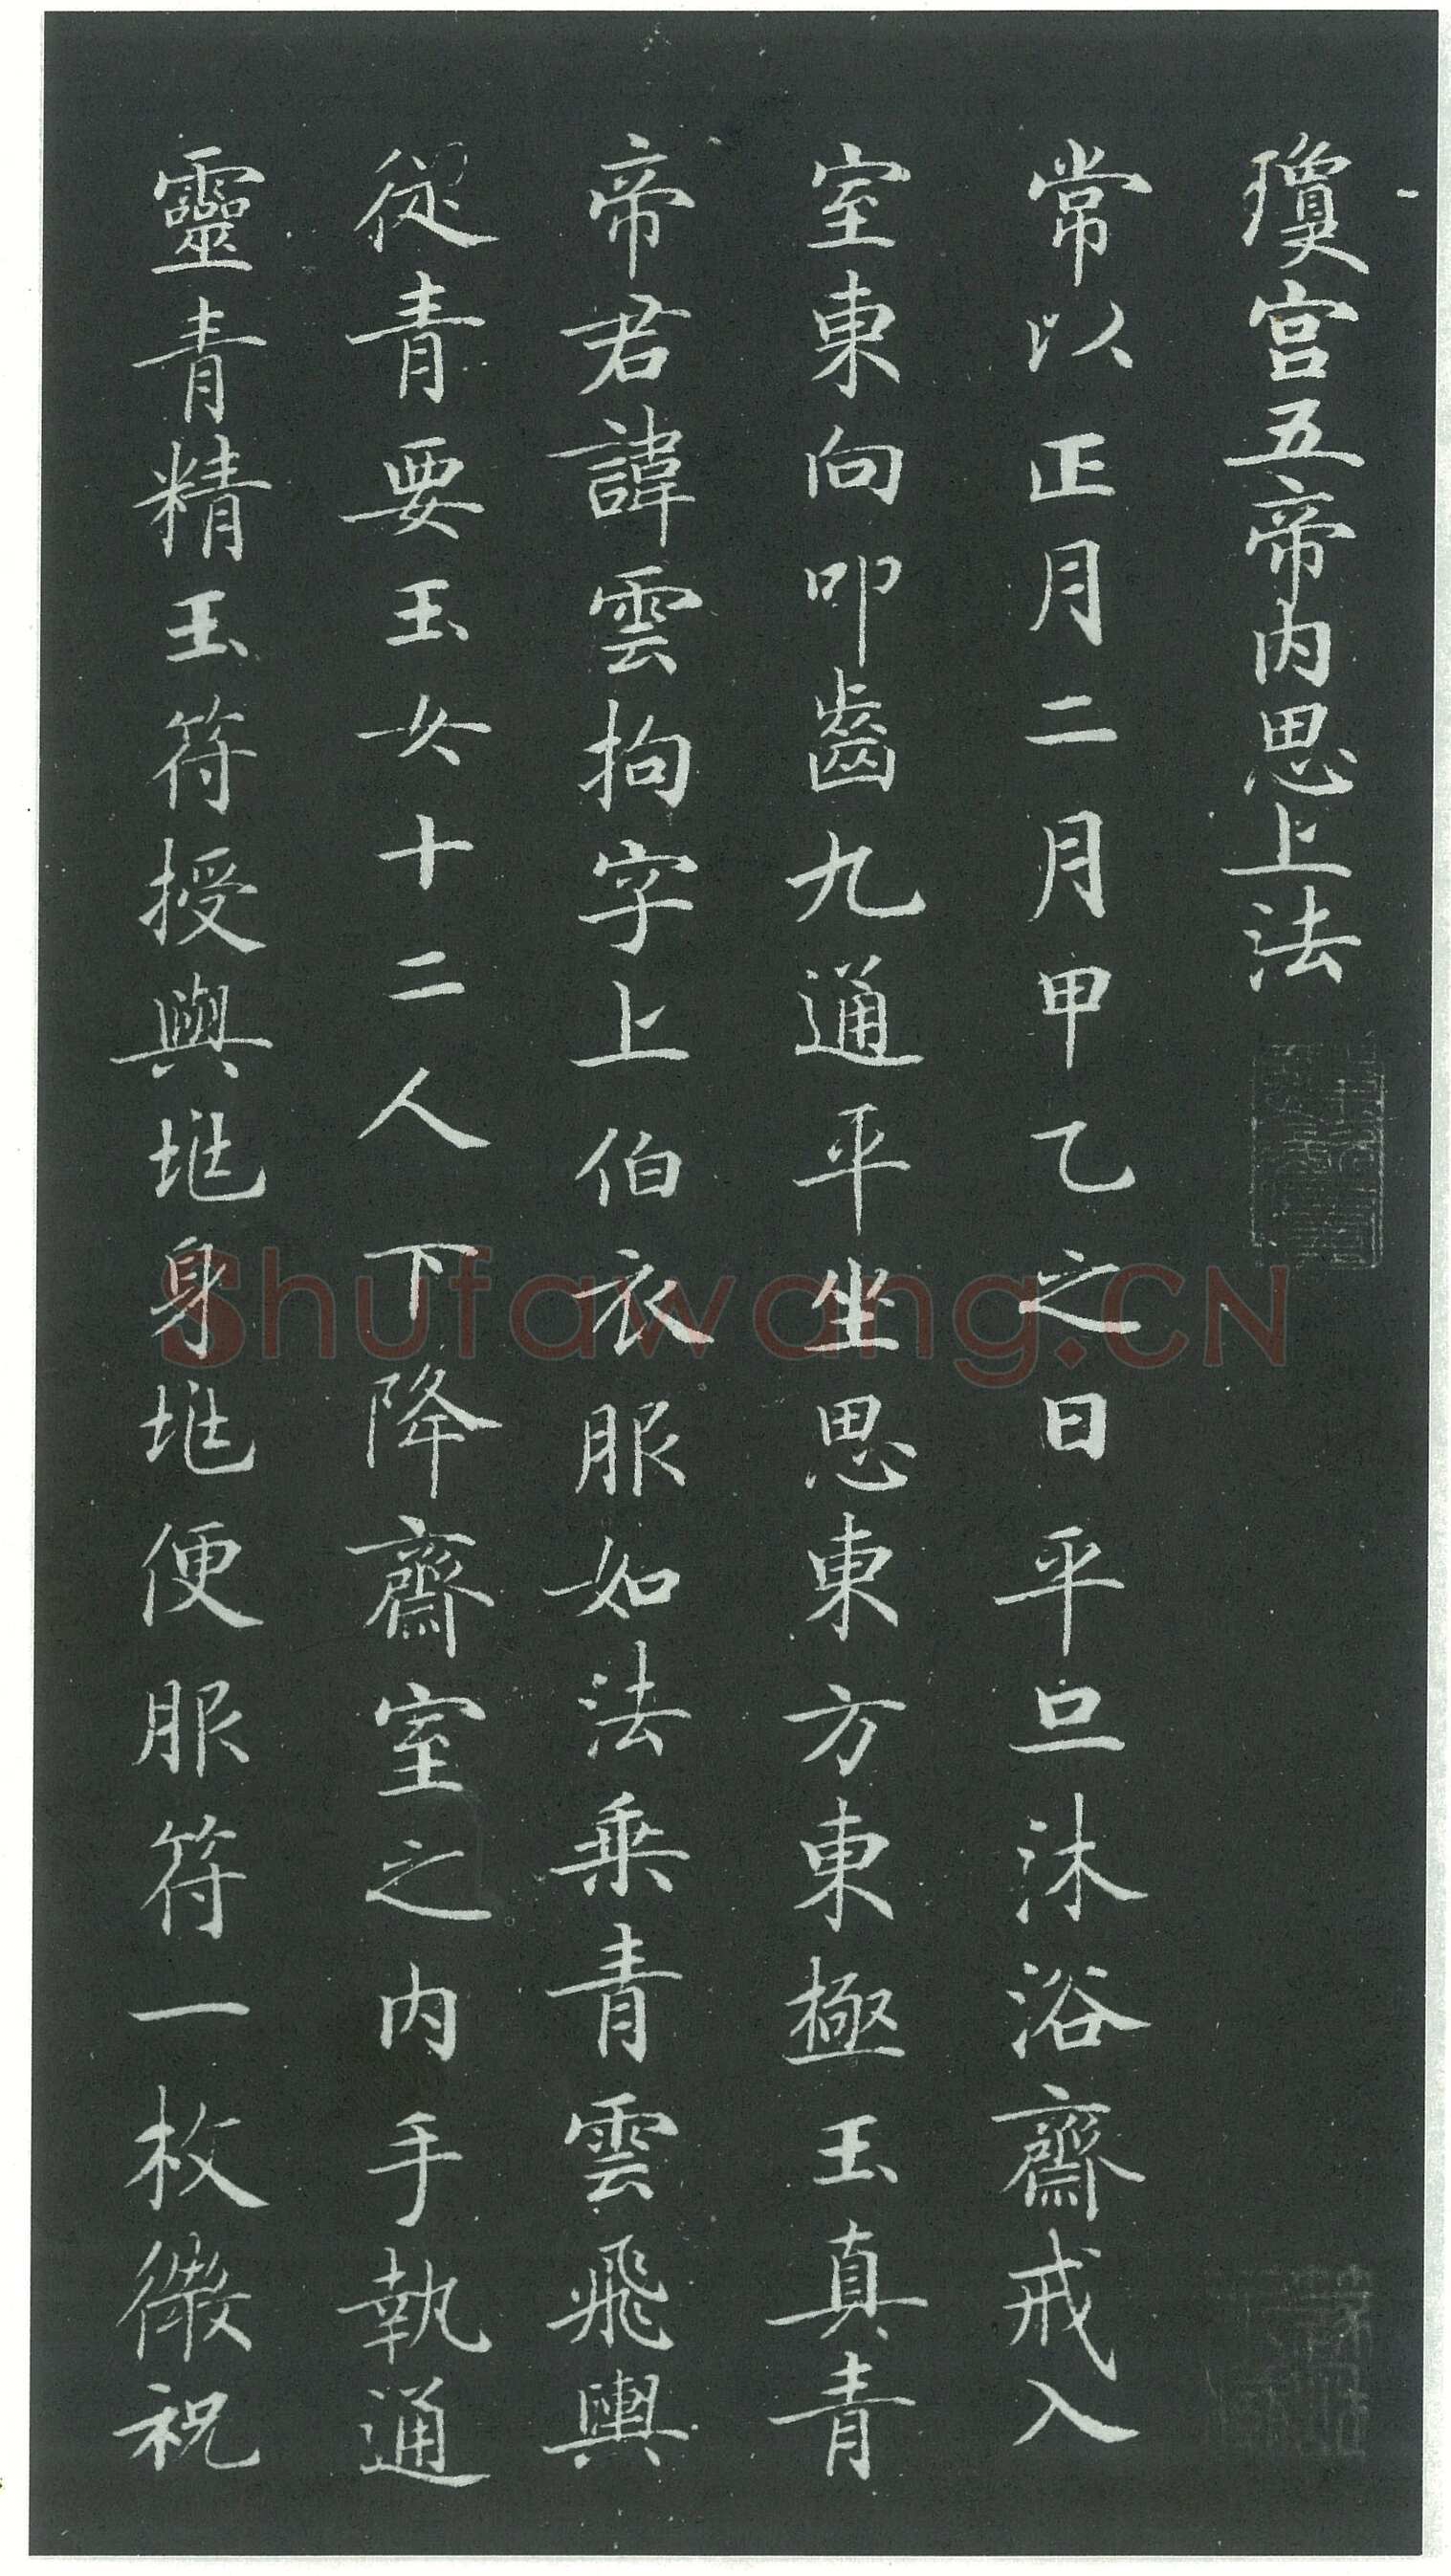 瓊宮五帝内思上法
常以正月二月甲乙之日平旦沐浴齋戒入
室東向叩齒九通平坐思東方東極玉真青
帝君諱雲拘字上伯衣服如法乘青雲飛輿
從青要玉女十二人下降齋室之内手執通
靈青精玉符授與兆身兆便服符一枚微祝
Shufawang.CN